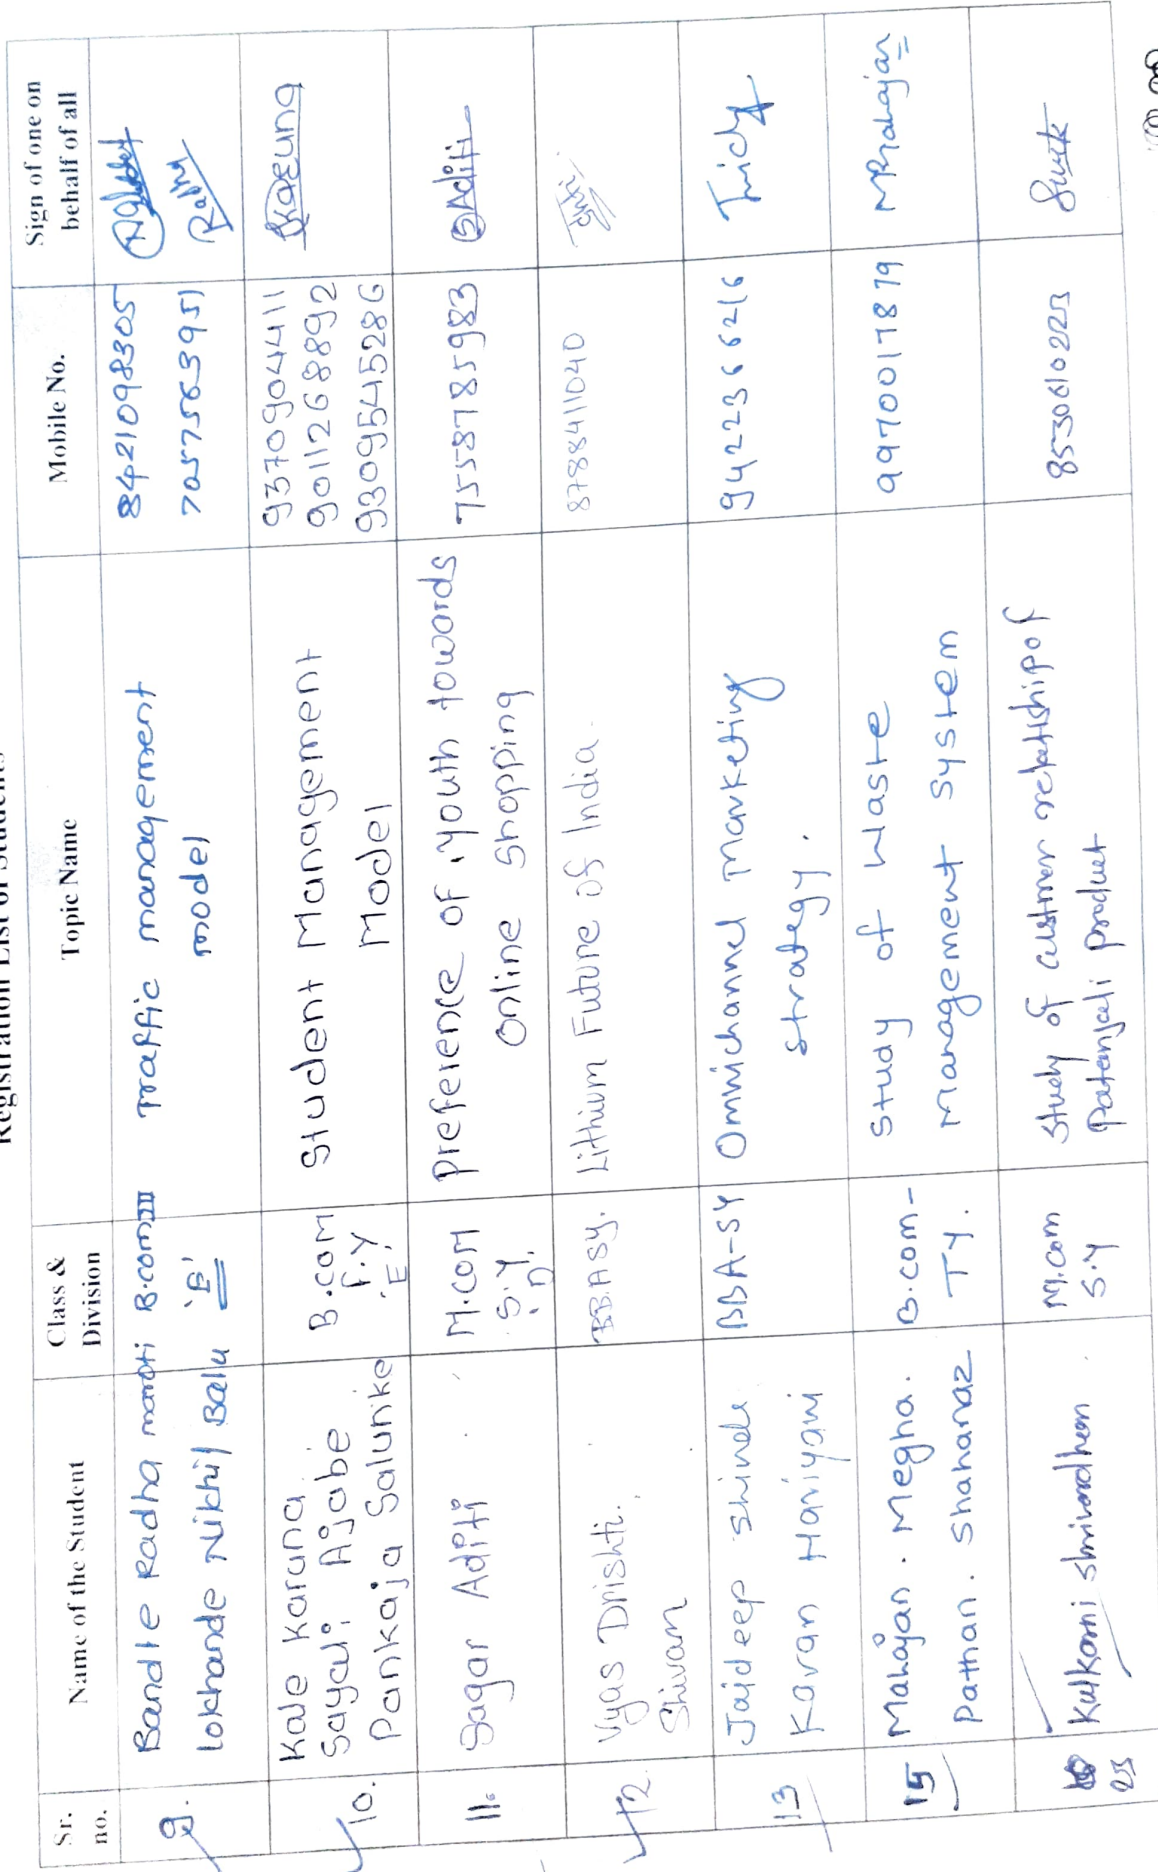 Registration List of Students
Sr. no.
Name of the Student
Class & Division
Topic Name
Mobile No.
Sign of one on behalf of all
9.
Bandle Radha maroti
Lokhande Nikhil Balu
B.com III
'B'
Traffic management
model
8421098305
7057563951
10.
Kale Karuna
Sayali Ajabe
Pankaja Salunke
B.com
F.Y
'E'
Student Management
Model
9370904411
9011268892
9309545286
11.
Sagar Aditi
M.COM
S.Y.
'D'.
preference of youth towords
online shopping
7558785983
Aditi
12.
Vyas Drishti.
Shivam
BBA SY.
Lithium Future of India
8788411040
13
Jaideep Shinde
Karan Hariyani
BBA-SY
Omnichannel marketing
strategy.
9422366216
15
Mahajan. Megha.
Pathan. Shahanaz
B.com-
TY.
Study of Waste
Management System
9970017879
MMahajan
Kulkarni
M.com
S.Y
Study of custmer relatiship of
Patanjali product
8530610223